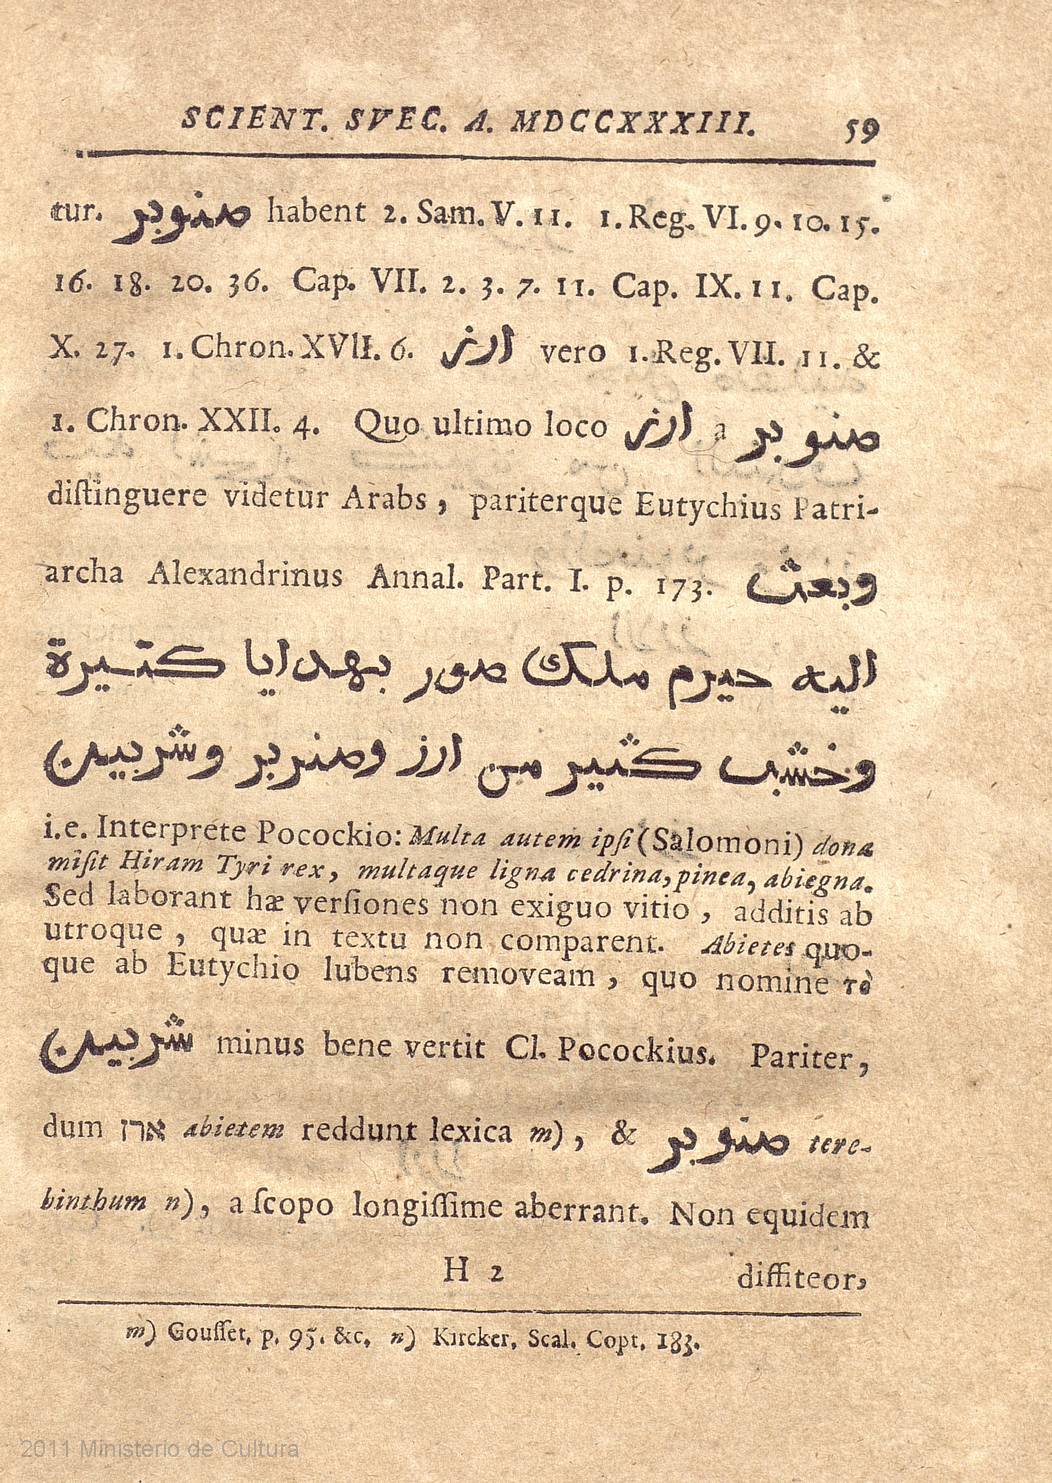 SCIENT. SVEC. A. MDCCXXXIII. 59
tur. صنوبر habent 2. Sam. V. 11. 1. Reg. VI. 9. 10. 15.
16. 18. 20. 36. Cap. VII. 2. 3. 7. 11. Cap. IX. 11. Cap.
X. 27. 1. Chron. XVII. 6. ارز vero 1. Reg. VII. 11. &
1. Chron. XXII. 4. Quo ultimo loco ارز a صنوبر
diſtinguere videtur Arabs, pariterque Eutychius Patri-
archa Alexandrinus Annal. Part. I. p. 173. وبعث
اليه حيرم ملك صور بهدايا كتيرة
وخشب كثير من ارز وصنربر وشربين
i.e. Interprete Pocockio: Multa autem ipſi (Salomoni) dona
miſit Hiram Tyri rex, multaque ligna cedrina, pinea, abiegna.
Sed laborant hæ verſiones non exiguo vitio, additis ab
utroque, quæ in textu non comparent. Abietes quo-
que ab Eutychio lubens removeam, quo nomine τὸ
شربين minus bene vertit Cl. Pocockius. Pariter,
dum ארז abietem reddunt lexica m), & صنوبر tere-
binthum n), a ſcopo longiſſime aberrant. Non equidem
H 2 diffiteor,
m) Gouſſet, p. 95. &c, n) Kircker, Scal. Copt. 183.
2011 Ministerio de Cultura